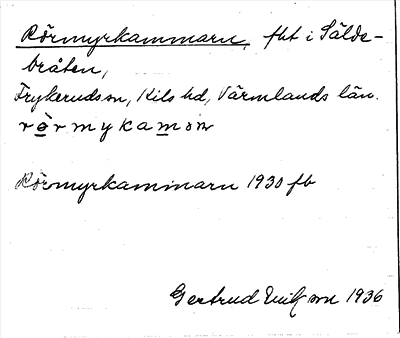 Rörmyrkammarn, fht i Sälde-
bråten,
Frykeruds sn, Kils hd, Värmlands län.
rörmykamån
Rörmyrkammarn 1930 fb
Gertrud Eriksson 1936